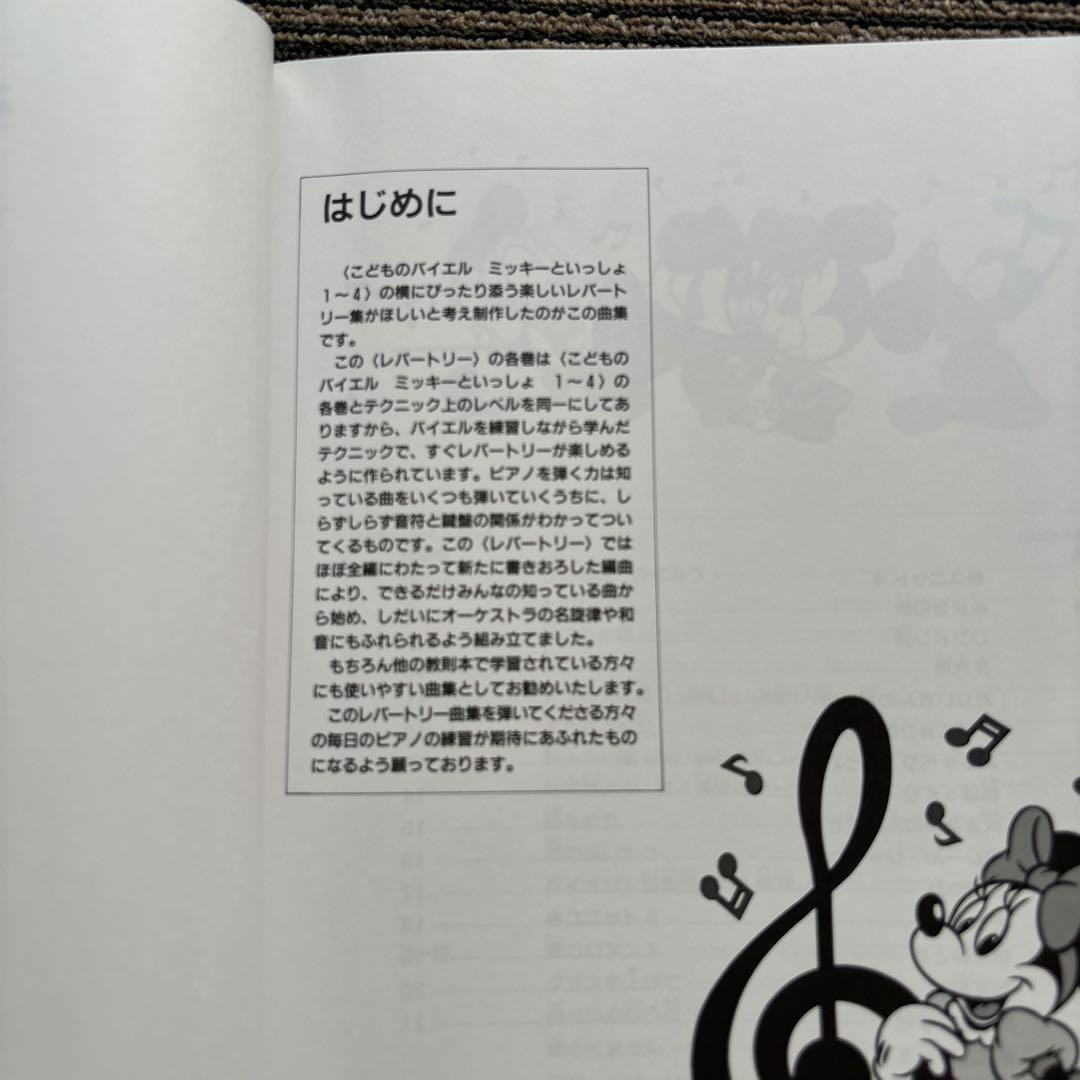 はじめに
〈こどものバイエル　ミッキーといっしょ
1～4〉の横にぴったり添う楽しいレパート
リー集がほしいと考え制作したのがこの曲集
です。
この〈レパートリー〉の各巻は〈こどもの
バイエル　ミッキーといっしょ　1～4〉の
各巻とテクニック上のレベルを同一にしてあ
りますから、バイエルを練習しながら学んだ
テクニックで、すぐレパートリーが楽しめる
ように作られています。ピアノを弾く力は知
っている曲をいくつも弾いていくうちに、し
らずしらず音符と鍵盤の関係がわかってつい
てくるものです。この〈レパートリー〉では
ほぼ全編にわたって新たに書きおろした編曲
により、できるだけみんなの知っている曲か
ら始め、しだいにオーケストラの名旋律や和
音にもふれられるよう組み立てました。
もちろん他の教則本で学習されている方々
にも使いやすい曲集としてお勧めいたします。
このレパートリー曲集を弾いてくださる方々
の毎日のピアノの練習が期待にあふれたもの
になるよう願っております。